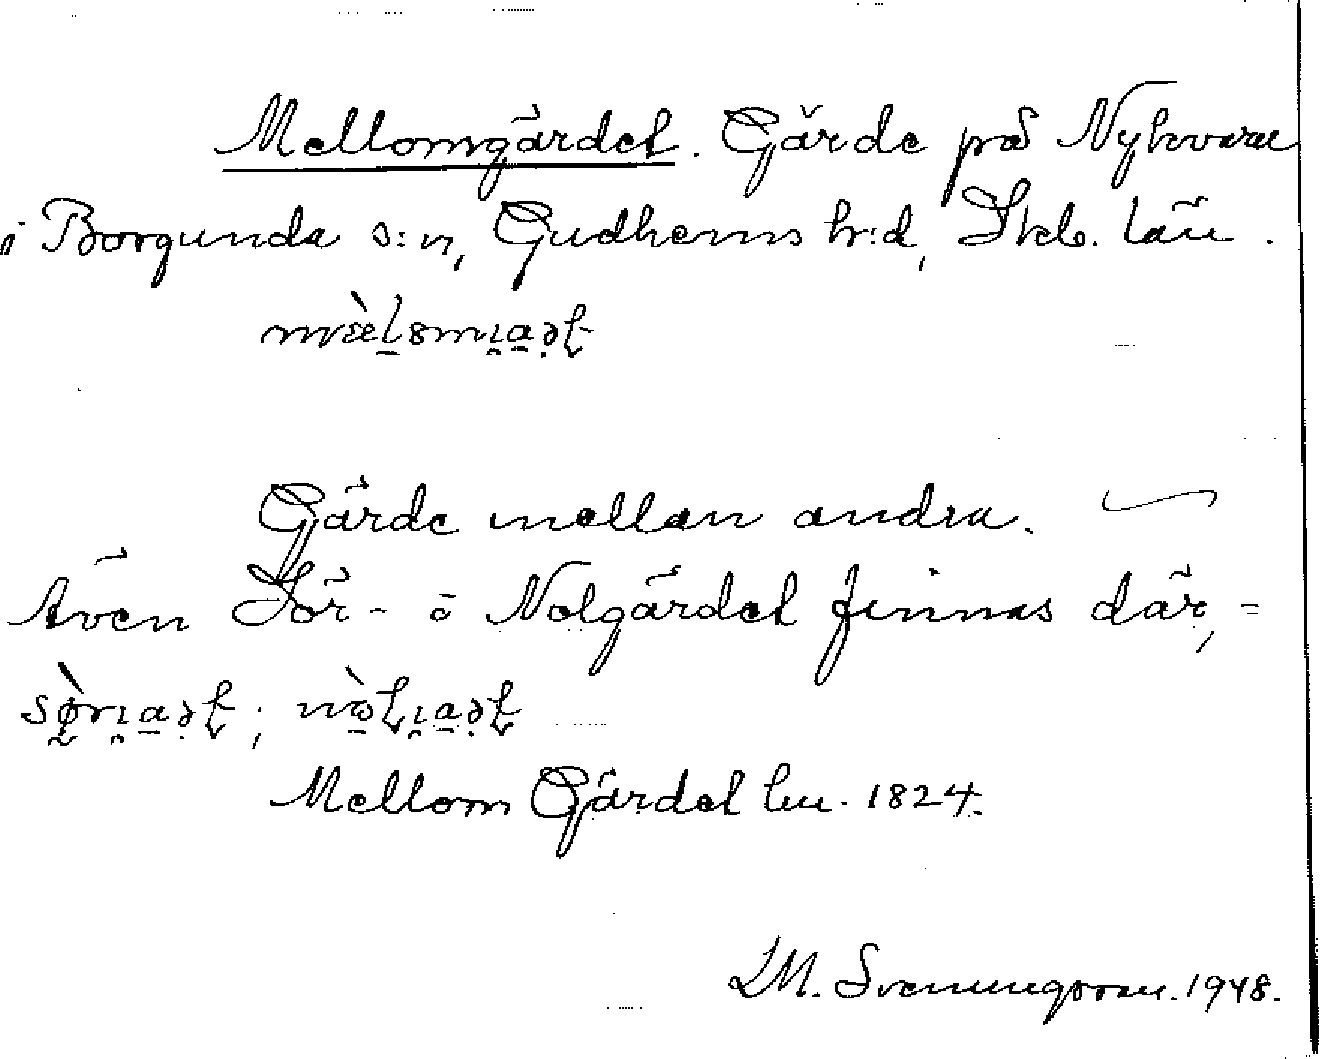 Mellomgärdet. Gärde på Nykvarn
i Borgunda s:n, Gudhems h:d, Skb. län.
Gärde mellan andra.
Även Sör- o Nolgärdet finnas där, =
Mellom Gärdet lm. 1824.
LM. Svenungsson. 1948.